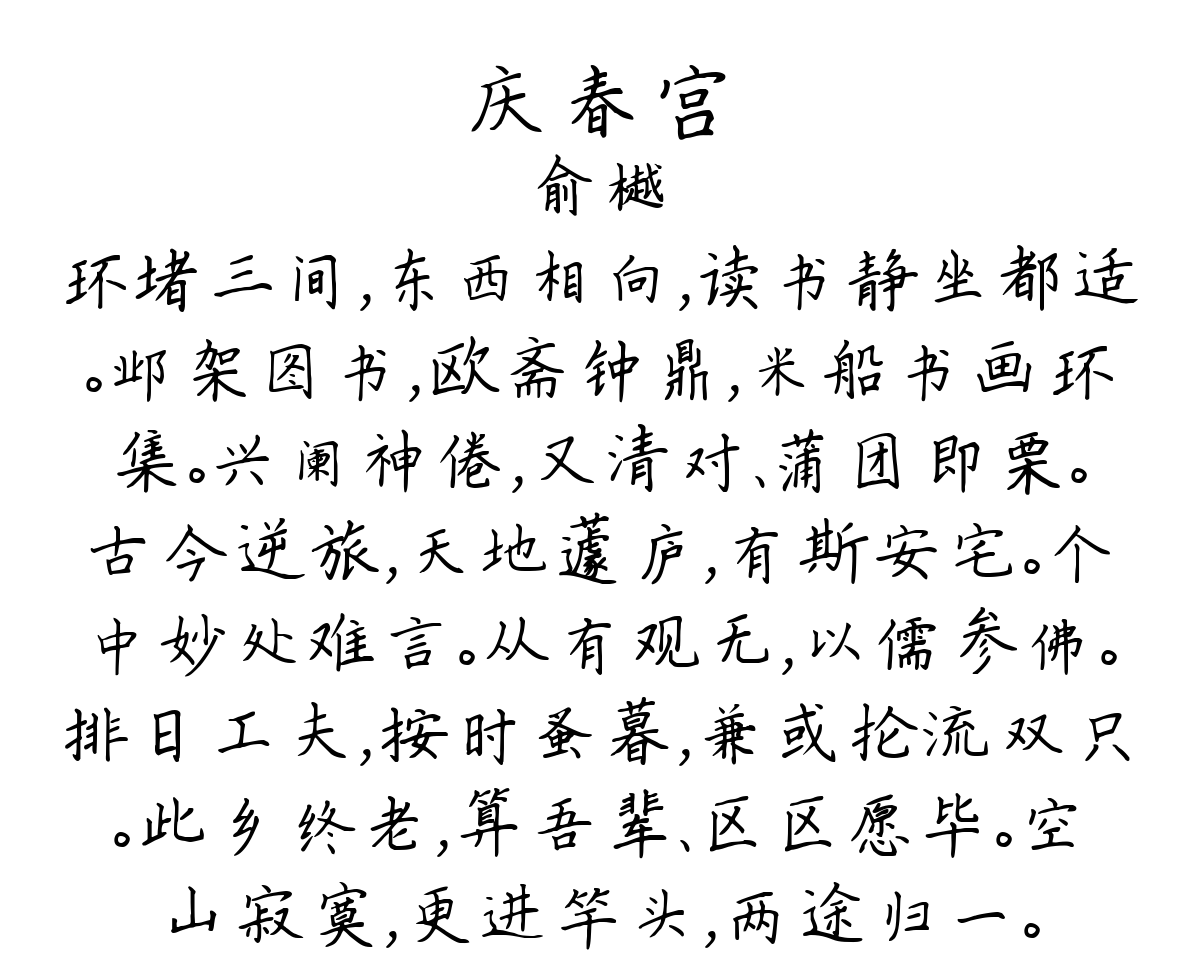 庆春宫
俞樾
环堵三间,东西相向,读书静坐都适
。邺架图书,欧斋钟鼎,米船书画环
集。兴阑神倦,又清对、蒲团即栗。
古今逆旅,天地蘧庐,有斯安宅。个
中妙处难言。从有观无,以儒参佛。
排日工夫,按时蚤暮,兼或抡流双只
。此乡终老,算吾辈、区区愿毕。空
山寂寞,更进竿头,两途归一。